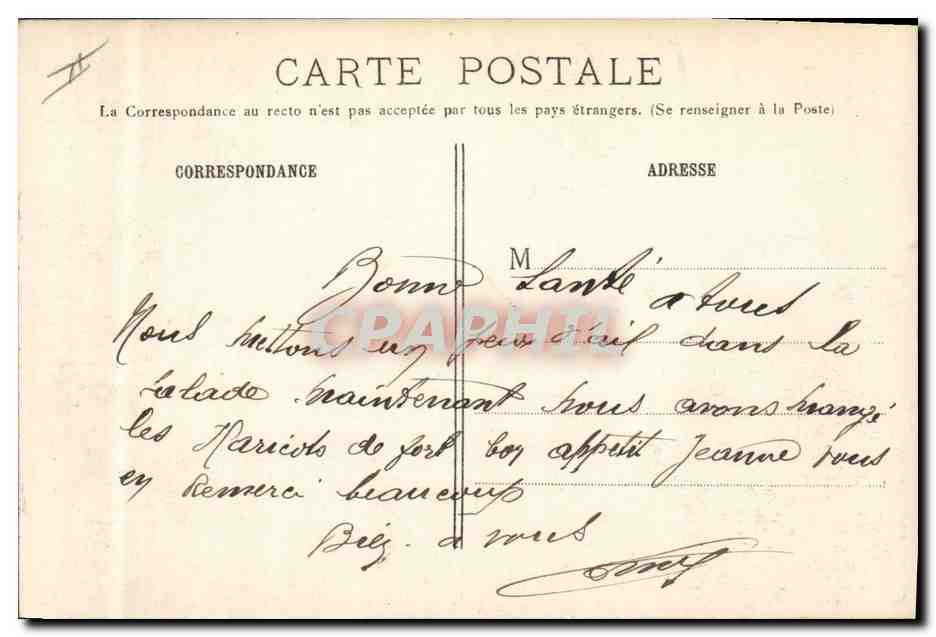 CARTE POSTALE
La Correspondance au recto n'est pas acceptée par tous les pays étrangers. (Se renseigner à la Poste)
CORRESPONDANCE
ADRESSE
M
Bonne Santé a tous
Nous mettons un peux d'ail dans la
salade maintenant nous avons mangé
les Haricots de fort bon appetit Jeanne vous
en Remerci beaucoup
Bien a vous
CPAPHIL